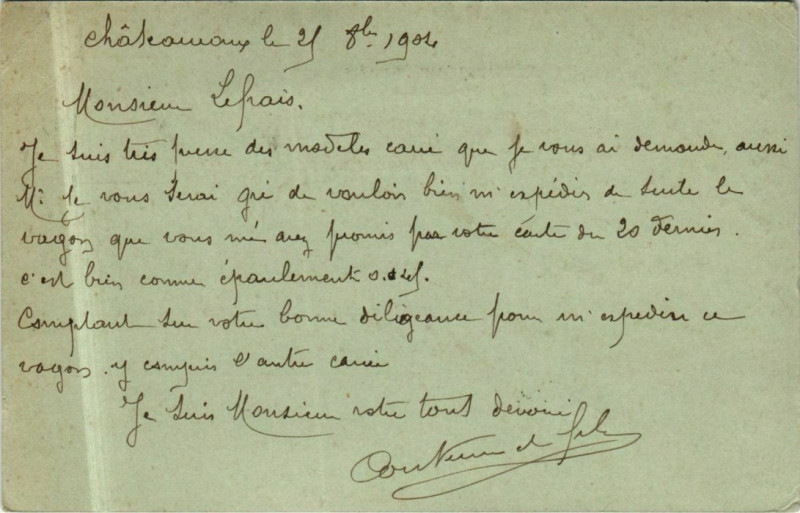 Châteauroux le 25 8bre 1904
Monsieur Lefrais.
Je suis très pressé des modeles carré que je vous ai demandé, aussi
Mr je vous serai gré de vouloir bien m'expédier de suite le
wagon que vous m'avez promis par votre carte du 20 dernier.
c'est bien comme épaulement 0.
Comptant sur votre bonne diligeance pour m'expedier ce
wagon. y compris l'autre carré
Je suis Monsieur votre tout dévoué
et fils